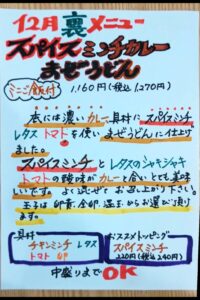 12月裏メニュー
スパイスミンチカレー
まぜうどん
ミニご飯付
1,160円(税込1,270円)
本には濃いカレー、具材にスパイスミンチ
レタス トマトを使い まぜうどんに仕上げ
ました。
スパイスミンチとレタスのシャキシャキ
トマトの酸味がカレーと合い とても美味
しいです。よく混ぜてお召し上がり下さい。
玉子は卵黄、全卵、温玉からお選び頂け
ます。
具材
チキンミンチ レタス
トマト 卵
おススメトッピング
スパイスミンチ
220円(税込240円)
中盛りまでOK